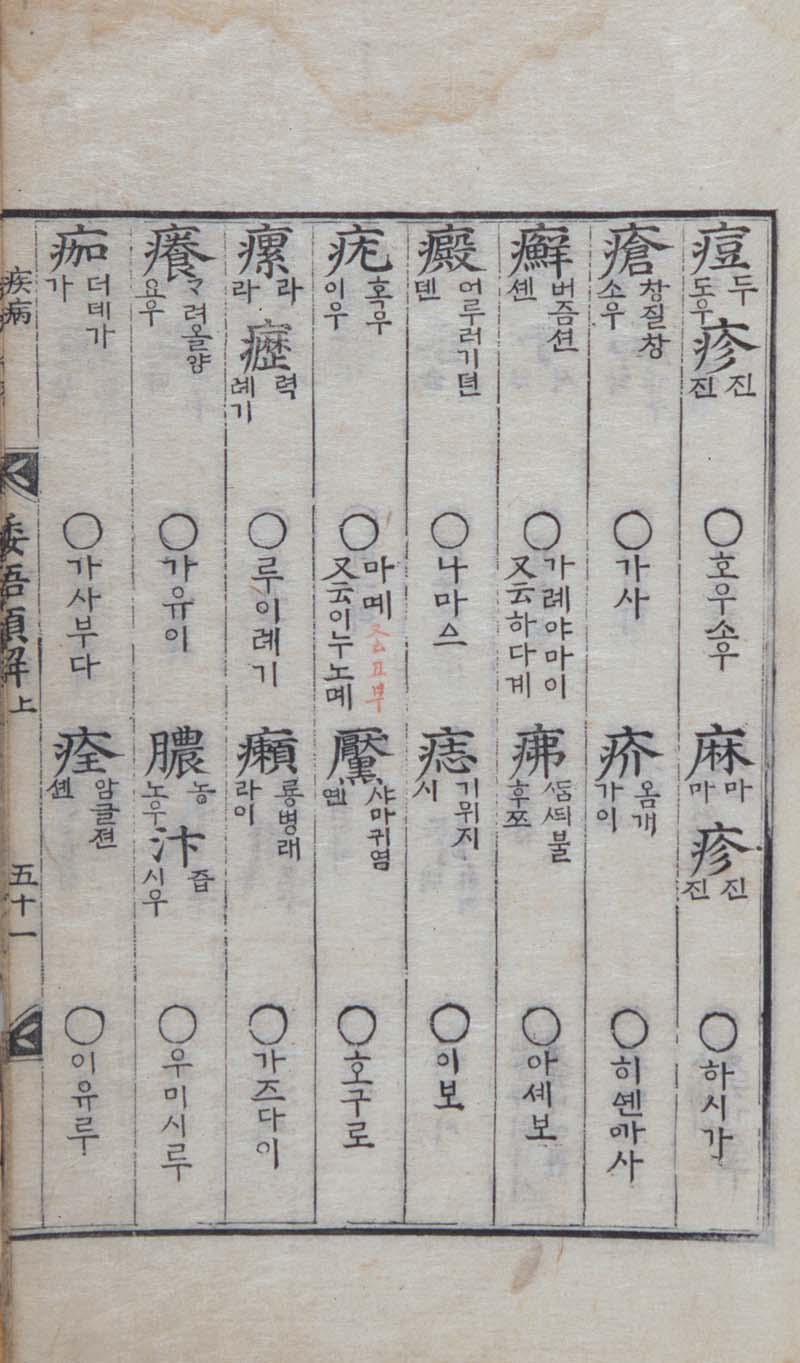 痘 두 도우 疹 진 진 ○호우소우 麻 마 마 疹 진 진 ○하시가
瘡 창질창 소우 ○가사 疥 옴개 가이
癬 버즘션 셴 ○가례야마이 又云하다계 疿 ᄯᅡᆷᄯᅬ불 후쯔 ○아셰보
癜 어루러기뎐 덴 ○나마스 痣 기위지 시 ○이보
疣 혹우 이우 ○마몌 又云이누노몌 又云요부 黶 샤마귀염 옌 ○호구로
瘰 라 라 癧 력 례기 ○루이례기 癩 룡병래 라이 ○가즈다이
癢 ᄀᆞ려올양 요우 ○가유이 膿 농 노우 汁 즙 시우 ○우미시루
痂 더데가 가 ○가사부다 痊 암글젼 셴 ○이유루
疾病 倭語類解上 五十一